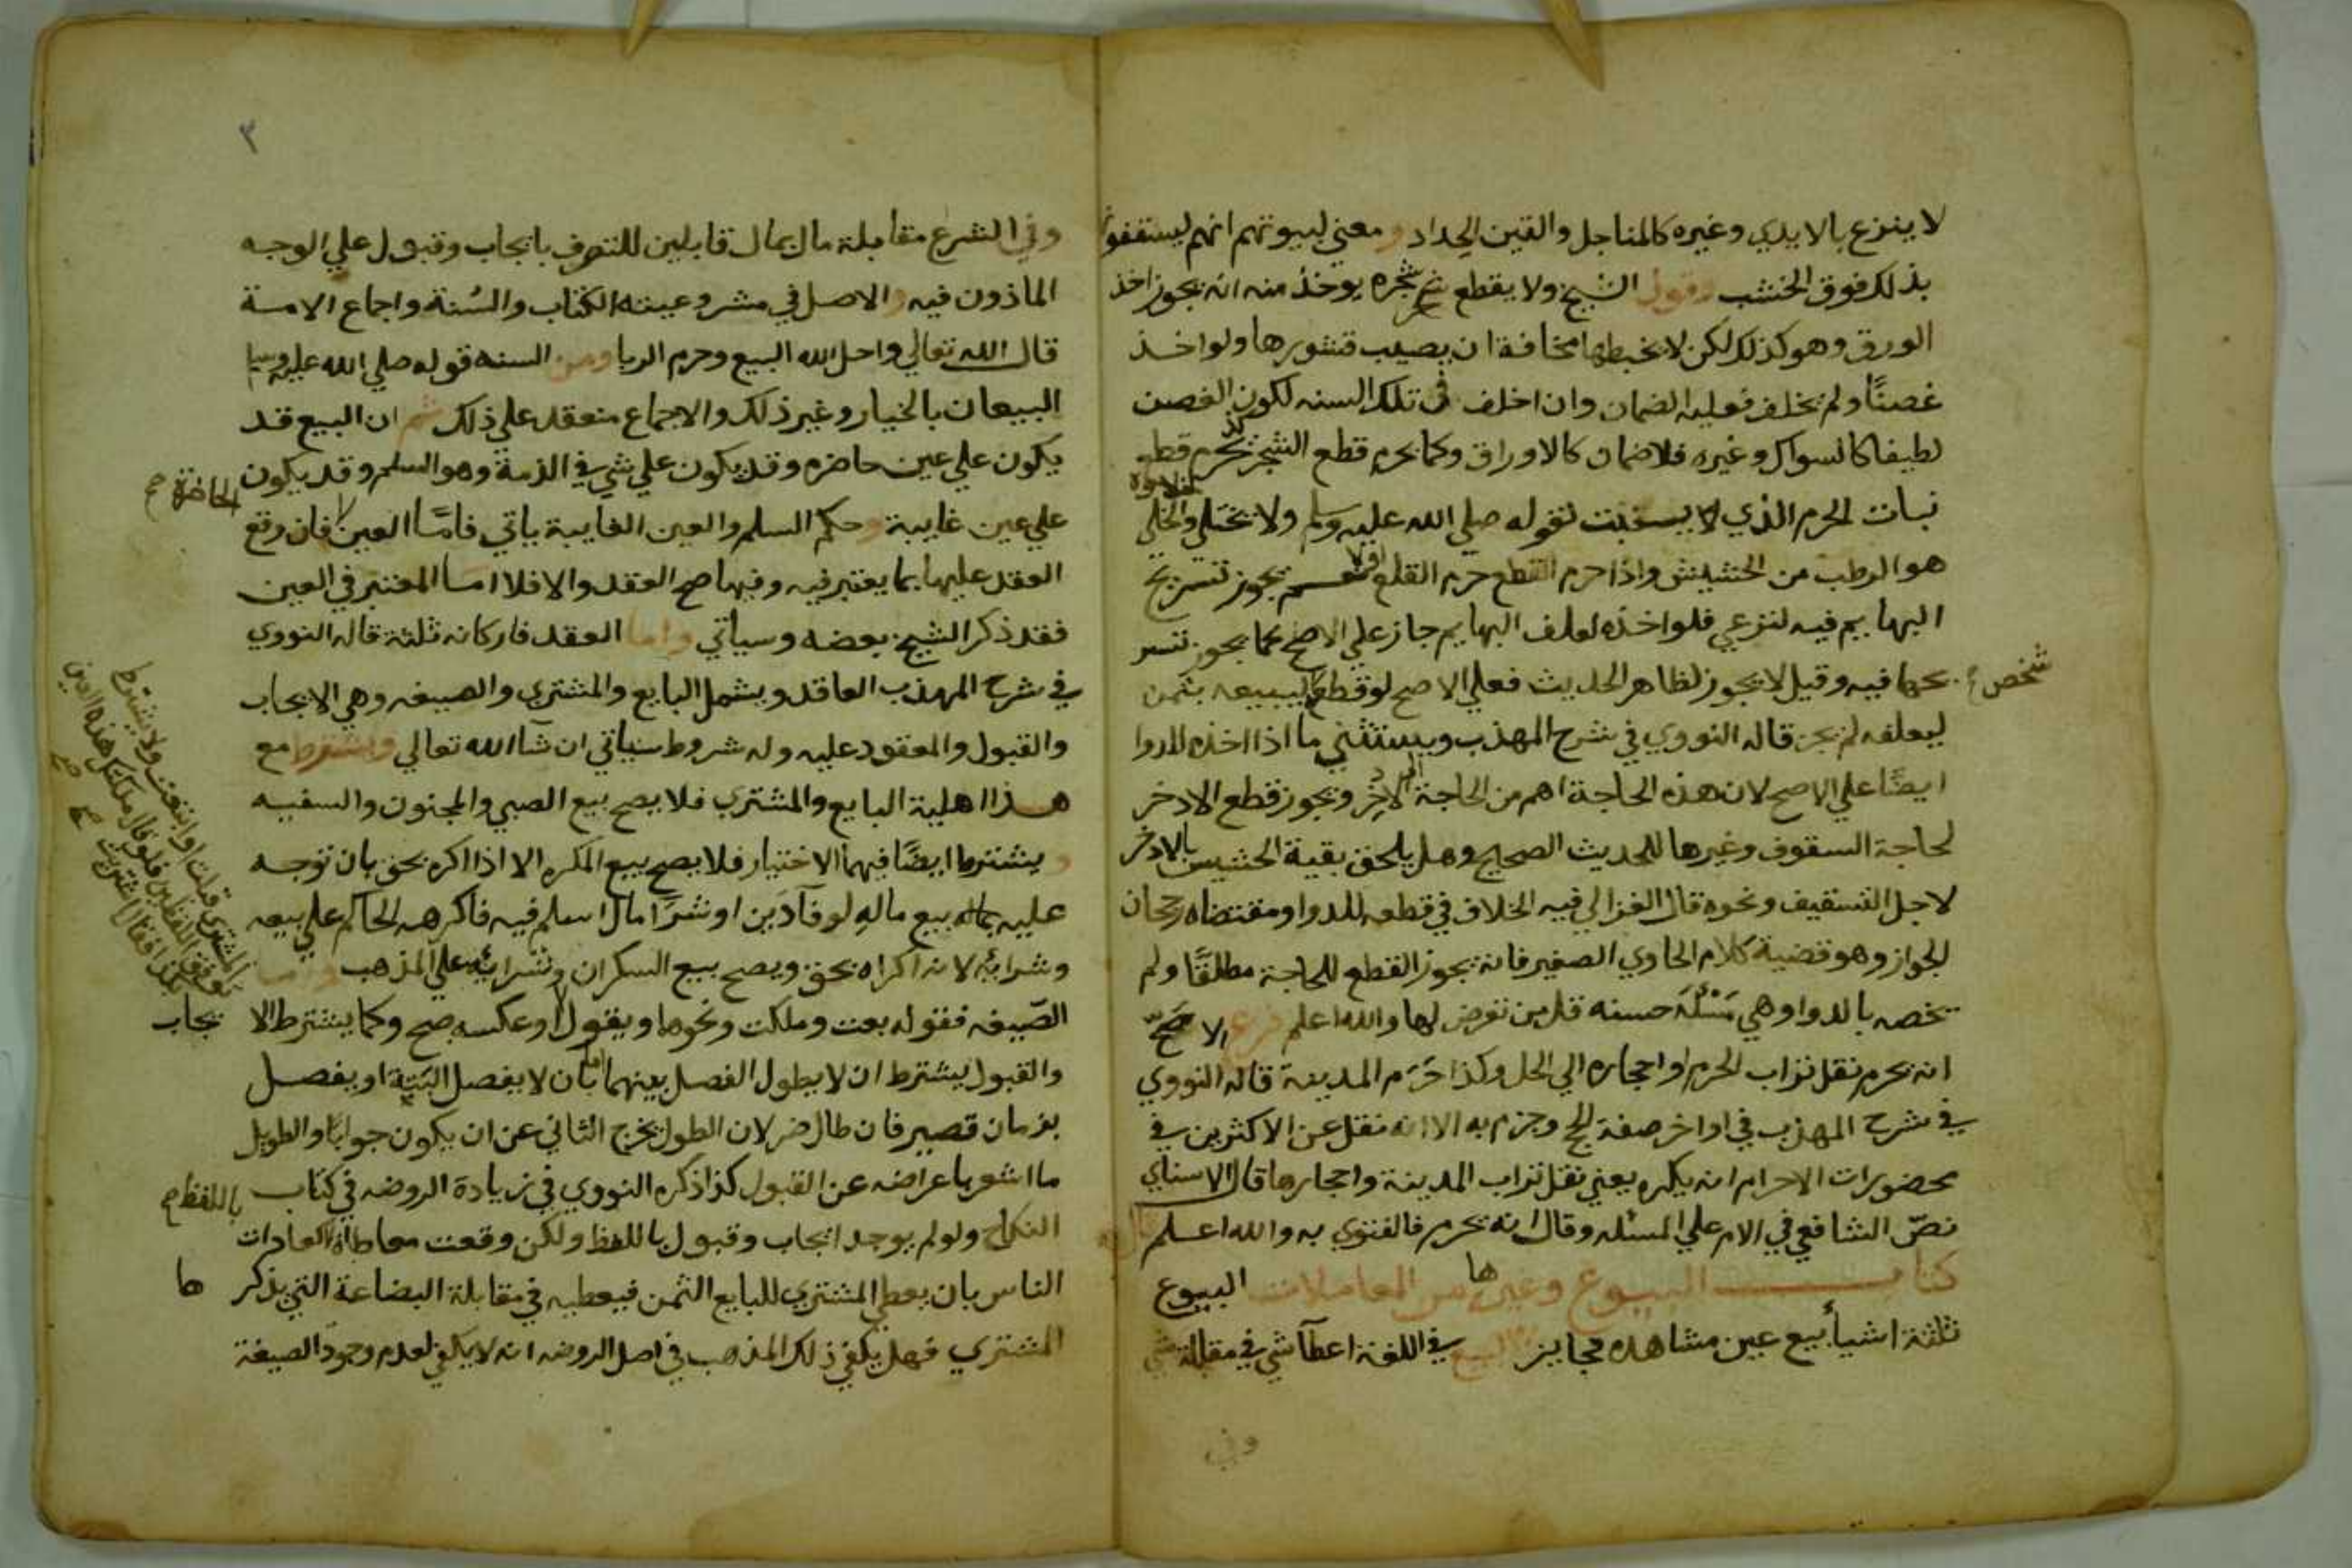 لا ينزع بالايدي وغيره كالمناجل والقين الحداد ومعني لبيوتهم انهم يسقفونها
بذلك فوق الخشب وقول الشيخ ولا يقطع شجره يوخذ منه انه يجوز اخذ
الورق وهو كذلك لكن لا يخبطها مخافة ان يصيب قشورها ولو اخذ
غصنًا ولم يخلف فعليه الضمان وان اخلف في تلك السنه لكون الغصن
لطيفا كالسواك وغيره فلا ضمان كالاوراق وكما يحرم قطع الشجر يحرم قطع
نبات الحرم الذي لا يستنبت لقوله صلي الله عليه وسلم ولا يختلي خلاه والخلي
هو الرطب من الحشيش واذا حرم القطع حرم القلع اولا نعم يجوز تسريح
البهايم فيه لترعي فلو اخذه لعلف البهايم جاز علي الاصح كما يجوز تسر
يحها فيه وقيل لا يجوز لظاهر الحديث فعلي الاصح لو قطع شخص ليبيعه بثمن
ليعلفه لم يجز قاله النووي في شرح المهذب ويستثني ما اذا اخذه للدوا
ايضًا علي الاصح لان هذه الحاجة اهم من الحاجة الاذخر ويجوز قطع الاذخر
لحاجة السقوف وغيرها للحديث الصحيح وهل يلحق بقية الحشيش بالاذخر
لاجل التسقيف ونحوه قال الغزالي فيه الخلاف في قطعه للدوا ومقتضاه رجحان
الجواز وهو قضية كلام الحاوي الصغير فانه يجوز القطع للحاجة مطلقًا ولم
يخصه بالدوا وهي مسئلة حسنه قل من تعرض لها والله اعلم فرع الاصح
انه يحرم نقل تراب الحرم او احجاره الي الحل وكذا حرم المدينة قاله النووي
في شرح المهذب في اواخر صفة الحج وجزم به الا انه نقل عن الاكثرين في
محضورات الاحرام انه يكره يعني نقل تراب المدينة واحجارها قال الاسناي
نصّ الشافعي في الام علي المسئله وقال انه يحرم فالفتوي به والله اعلم قال
كتاب البيوع وغيرها من المعاملات البيوع
ثلثة اشيأ بيع عين مشاهده فجايز البيع في اللغة اعطآ شي في مقابلة شي
وفي
٣
وفي الشرع مقابلة مال بمال قابلين للتصرف بايجاب وقبول علي الوجه
الماذون فيه والاصل في مشروعيته الكتاب والسُنة واجماع الامة
قال الله تعالي واحل الله البيع وحرم الربا ومن السنه قوله صلي الله عليه وسلم
البيعان بالخيار وغير ذلك والاجماع منعقد علي ذلك ثم ان البيع قد
يكون علي عين حاضره وقد يكون علي شي في الذمة وهو السلم وقد يكون
علي عين غايبة وحكم السلم والعين الغايبة ياتي فامّا العين الحاضرة صح فان وقع
العقد عليها بما يعتبر فيه وفيها صح العقد والا فلا اما المعتبر في العين
فقد ذكر الشيخ بعضه وسياتي واما العقد فاركانه ثلثة قاله النووي
في شرح المهذب العاقد ويشمل البايع والمشتري والصيغه وهي الايجاب
والقبول والمعقود عليه وله شروط ستاتي ان شا الله تعالي واشترط مع
هذا اهلية البايع والمشتري فلا يصح بيع الصبي والمجنون والسفيه
ويشترط ايضًا فيهما الاختيار فلا يصح بيع المكره الا اذا اكره بحق بان توجه
عليه بيع ماله لوفآ دَين او شرا مال اسلم فيه فاكرهه الحاكم علي بيعه
وشرائه لانه اكراه بحق ويصح بيع السكران وشرائه علي المذهب واما
الصّيغه فقوله بعت وملكت ونحوهما ويقول المشتري قبلت او ابتعت ولا يشترط
توافق اللفظين فلو قال ملكتك هذه العين
بكذا فقال اشتريت صح
او عكسه صح وكما يشترط الايجاب
والقبول يشترط ان لا يطول الفصل بينهما اما بان لا يفصل البَتة او يفصل
بزمان قصير فان طال ضر لان الطول يخرج الثاني عن ان يكون جوابًا والطويل
ما اشعر باعراضه عن القبول كذا ذكره النووي في زيادة الروضه في كتاب
النكاح ولو لم يوجد ايجاب وقبول باللفظ ولكن وقعت معاطاة كعادات
الناس بان يعطي المشتري للبايع الثمن فيعطيه في مقابلة البضاعة التي يذكرها
المشتري فهل يكفي ذلك المذهب في اصل الروضه انه لا يكفي لعدم وجود الصيغة
باللفظ صح